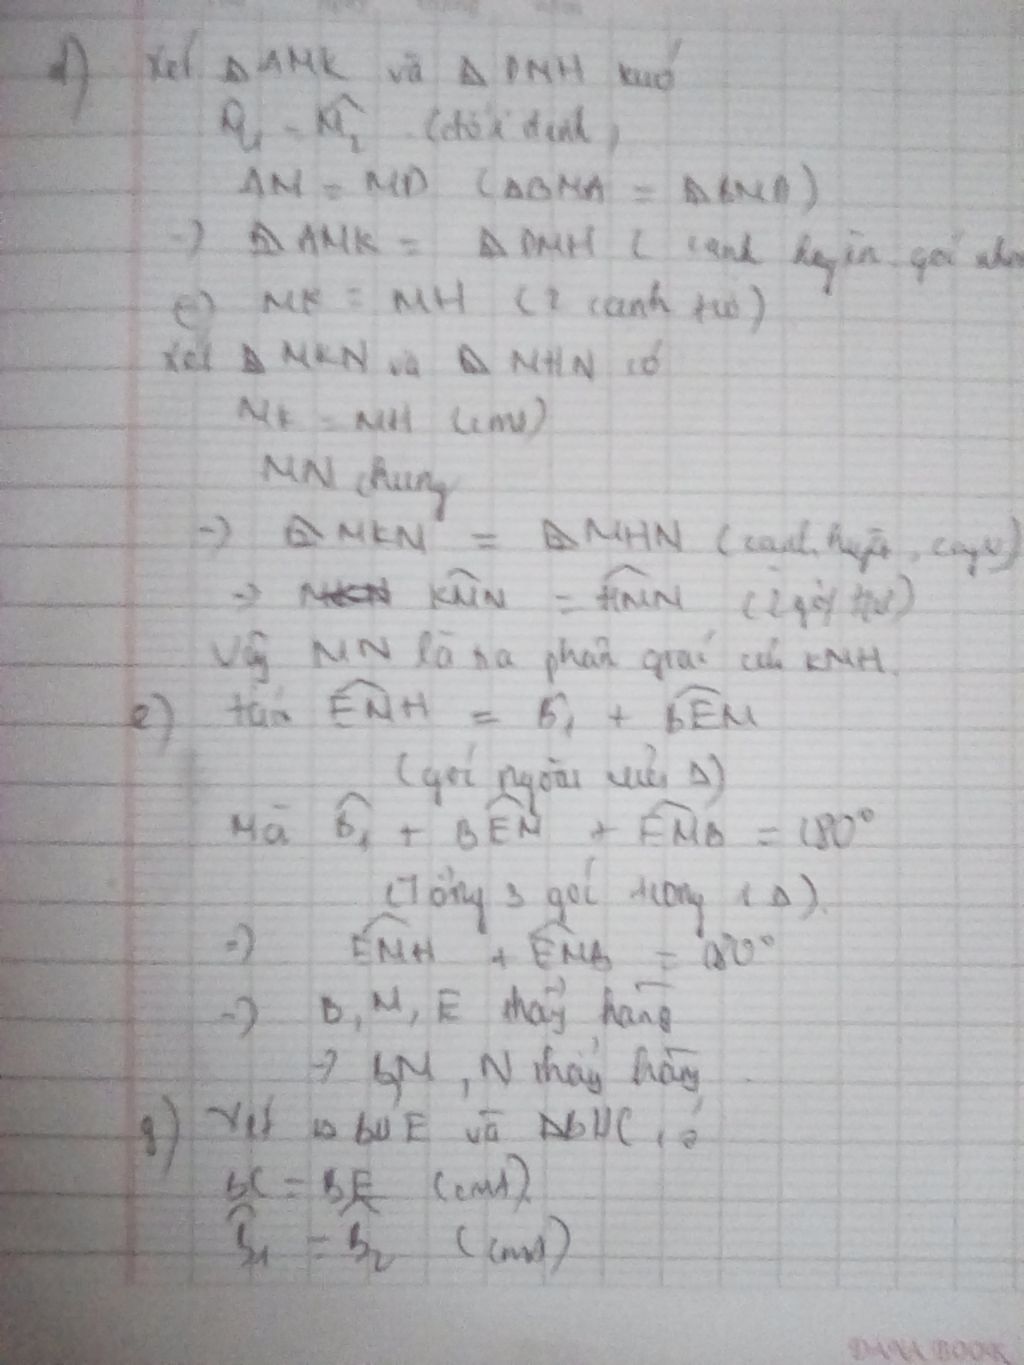 d) Xét Δ AMK và Δ DMH có
M̂₁ = M̂₂ (đối đỉnh)
AM = MD (ΔBMA = ΔBMD)
=> Δ AMK = Δ DMH ( cạnh huyền. góc nhọn
=> MK = MH (2 cạnh tư)
Xét Δ MKN và Δ MHN có
MK = MH (cmt)
MN chung
=> Δ MKN = Δ MHN (cạnh huyền, cgv)
=> KMN = HMN (2 góc tư)
Vậy MN là tia phân giác của KMH.
e) ENH = B̂₁ + BEM
(góc ngoài của Δ)
Mà B̂₁ + BEM + EMB = 180°
(Tổng 3 góc trong 1 Δ).
=> EMH + EMB = 180°
=> B, M, E thẳng hàng
=> B,M, N thẳng hàng
g) Xét Δ BNE và ΔBNC có
BC = BE (cmt)
B̂₁ = B̂₂ (cmt)
DANA BOOK